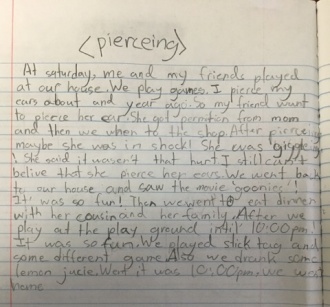 <pierceing>
At saturday, me and my friends played
at our house. We play games. I pierce my
ears about and year ago. So my friend want
to pierce her ear. She got permition from mom
and then we when to the shop. After pierceing
maybe she was in shock! She was giggleing
! She said it wasn't that hurt I still can't
belive that she pierce her ears. We went back
to our house, and saw the movie "goonies"!
It was so fun! Then we went to eat dinner
with her cousin and her family. After we
play at the play ground intil 10:00pm!
It was so fun. We played stick tag and
some different game. Also we drank some
lemon jucie. Wen it was 10:00pm, we went
home